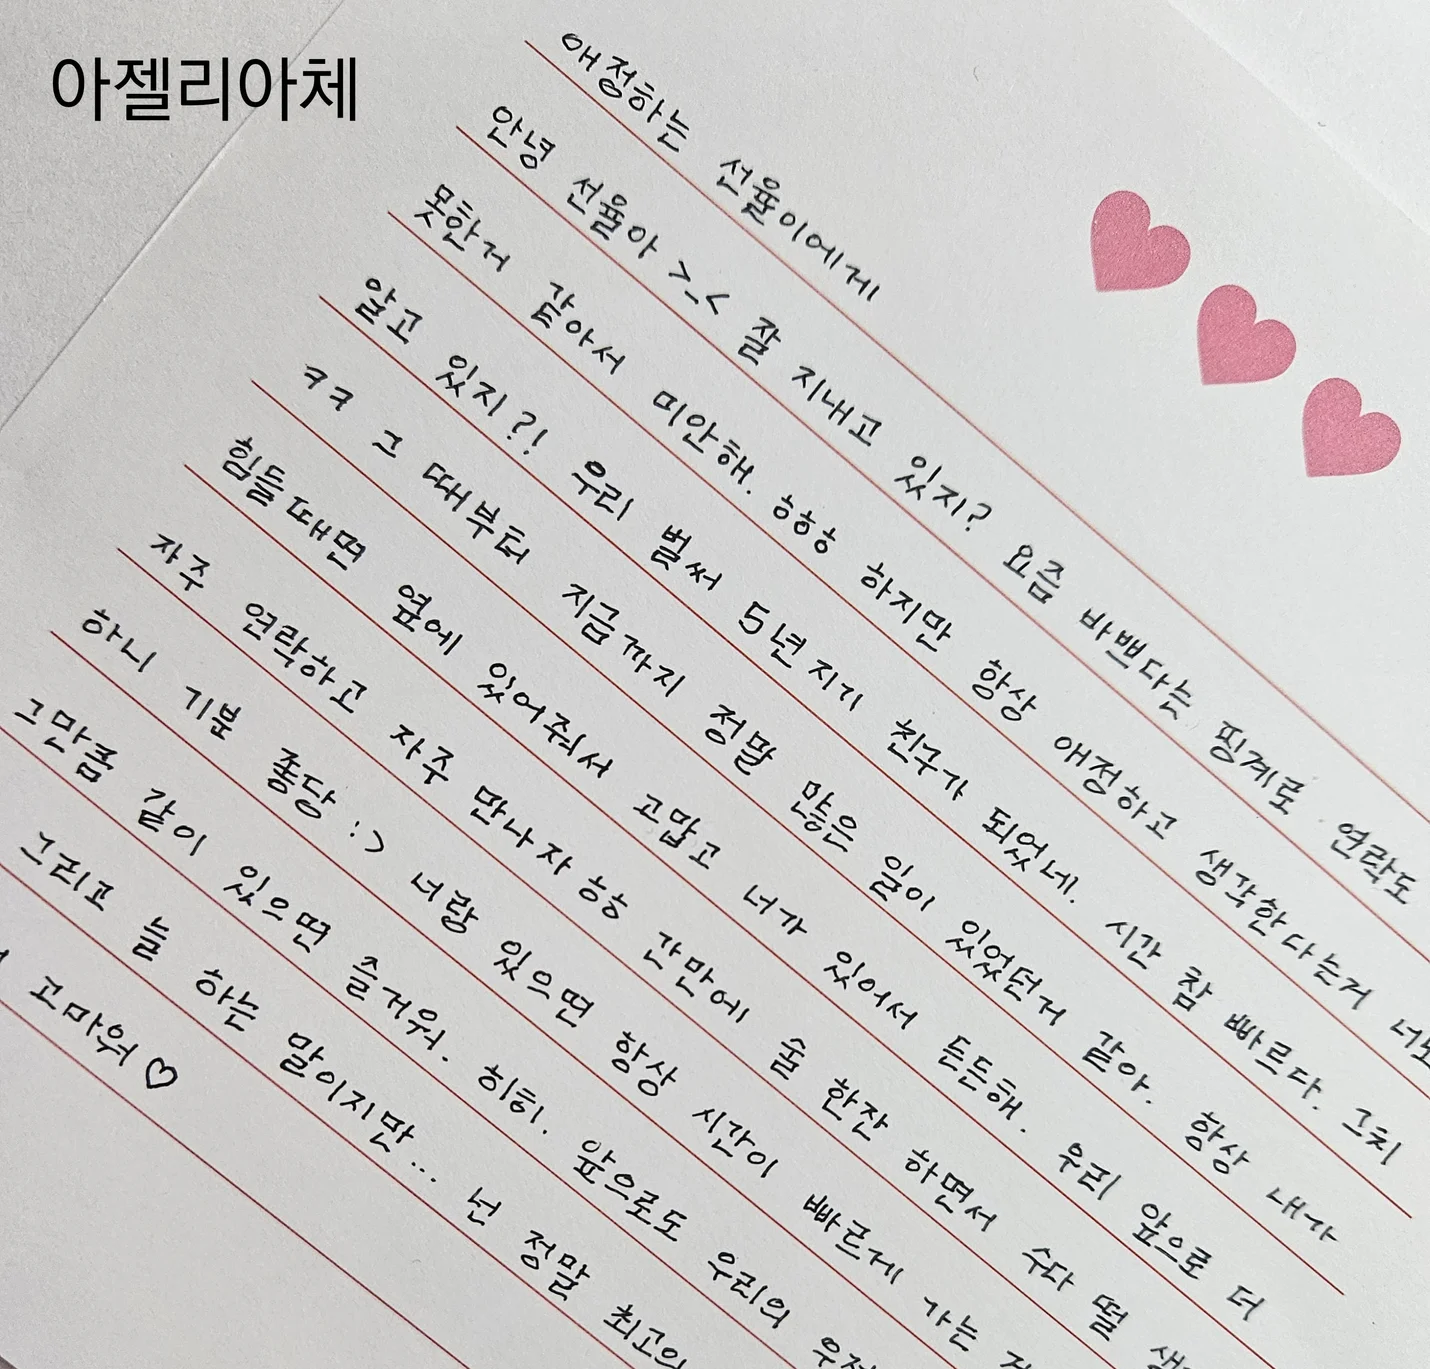 아젤리아체
애정하는 선율이에게
안녕 선율아 >_< 잘 지내고 있지? 요즘 바쁘다는 핑계로 연락도
못한거 같아서 미안해. ㅎㅎㅎ 하지만 항상 애정하고 생각한다는거 너도
알고 있지?! 우리 벌써 5년지기 친구가 되었네. 시간 참 빠르다. 그치
ㅋㅋ 그 때부터 지금까지 정말 많은 일이 있었던거 같아. 항상 내가
힘들때면 옆에 있어줘서 고맙고 너가 있어서 든든해. 우리 앞으로 더
자주 연락하고 자주 만나자 ㅎㅎ 간만에 술 한잔 하면서 수다 떨
하니 기분 좋당 :) 너랑 있으면 항상 시간이 빠르게 가는
그만큼 같이 있으면 즐거워. 히히. 앞으로도 우리의
그리고 늘 하는 말이지만... 넌 정말 최고의
고마워♡